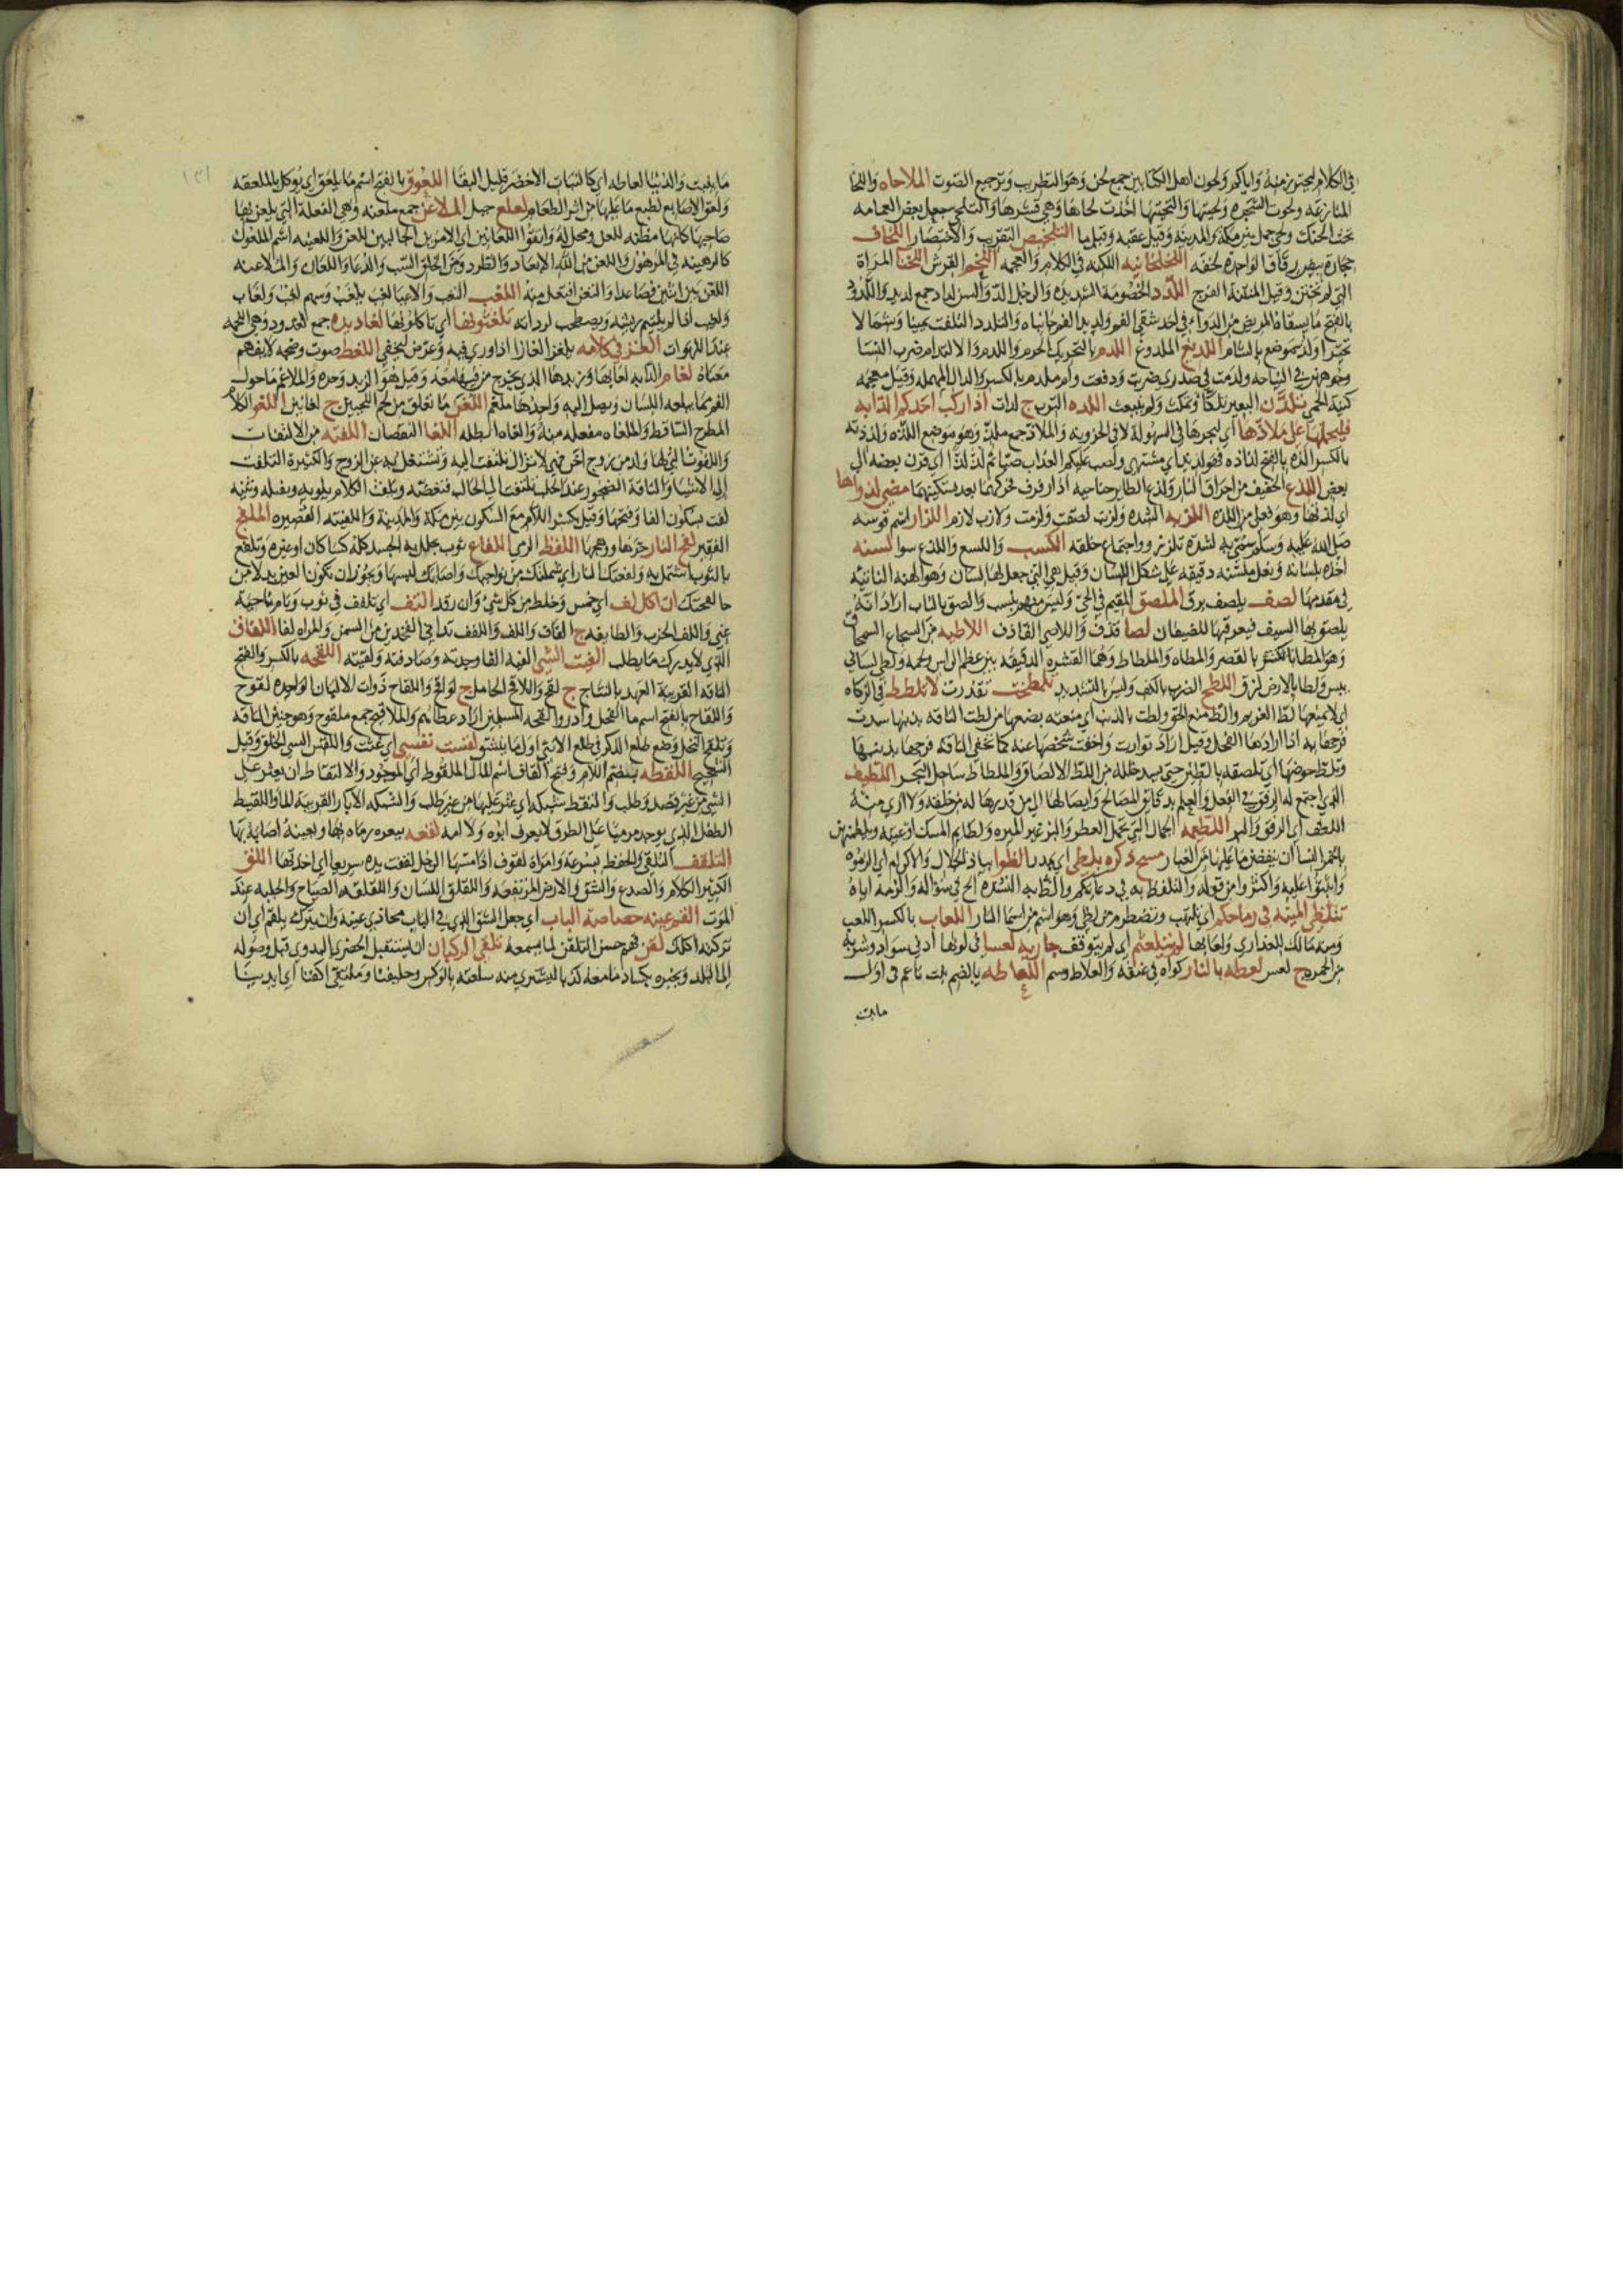 في الكلام لمحترز منه واياكم ولحون اهل الكتابين جمع لحن وهو التطريب وترجيع الصوت الملاحاه واللحا
المنازعه ولحوت الشجره ولحيتها والتحيتها اخذت لحاها وهي قشرها والتلحي جعل بعض العمامه
تحت الحنك ولحي جمل بين مكة والمدينة وقيل عقبه وقيل ما التلخيص التقريب والاختصار اللخاف
حجارة بيض رقاق الواحدة لخفه اللخلخانيه اللكنه في الكلام والعجمه اللخم القرش اللخنا المراة
التي لم تختن وقيل المنتنة الفرج اللدد الخصومة الشديده والرجل الد والسن لداد جمع لديد واللدود
بالفتح ما يسقاه المريض من الدواء في احد شقي الفم ولديدا الفم جانباه والتلدد التلفت يمينا وشمالا
تحيرا ولد موضع بالشام اللديغ الملدوغ اللدم بالتحريك الحرم واللدم والالتدام ضرب النسا
وجوههن في النياحه ولدمت في صدري ضربت ودفعت وام ملدم بالكسر والدال المهمله وقيل معجمه
كنية الحمى تلدن البعير تلكا وتمكث ولم ينبعث اللده الترب ج لدات اذا ركب احدكم الدابه
فليحملها على ملاذها اي ليجرها في السهولة لا في الحزونه والملاذ جمع ملذ وهو موضع اللذه ولذذته
بالكسر الذه بالفتح لذاذه فهو لذيذ اي مشتهى ولصب عليكم العذاب صبا ثم لذ لذا اي قرن بعضه الى
بعض اللذع الخفيف من احراق النار ولذع الطاير جناحيه اذا رفرف فحركهما بعد تسكينهما مضى لذواها
اي لذتها وهو فعلى من اللذه اللزبه الشده ولزب لصقت ولزمت ولازب لازم اللزاز اسم فرسه
صلى الله عليه وسلم سمي به لشدة تلززه واجتماع خلقه الكسب واللسع واللذع سوا لسنه
اخذه بلسانه ونعل ملسنه دقيقه على شكل اللسان وقيل هي التي جعل لها لسان وهو الهنه الناتيه
في مقدمها لصف يلصف برق الملصق المقيم في الحي وليس منهم بنسب والصق بالناب اراد انه
يلصق بها السيف فيعرقبها للضيفان لصا قذف واللاصي القاذف اللاطيه من الشجاج السمحاق
بيس ولطا بالارض لزق اللطح الضرب بالكف وليس بالشديد تلطخت تقذرت لا تلطط في الزكاه
اي لا تمنعها لط الغريم والط منع الحق ولطت بالذنب اي منعته بضعها من لطت الناقه بذنبها سدت
فرجها به اذا ارادها الفحل وقيل اراد توارت واخفت شخصها عنه كما تخفي الناقة فرجها بذنبها
وتلط حوضها اي تلصقه بالطين حتى يسد خلله من اللط الالصاق والملطاط ساحل البحر اللطيف
الذي اجتمع له الرفق في الفعل والعلم بدقائق المصالح وايصالها الى من قدرها له من خلقه ولا ارى منه
اللطف اي الرفق والبر اللطيمه الجمال التي تحمل العطر والبز غير الميره ولطايم المسك اوعيته ويلطمهن
بالخمر النسا ان ينفضن ما عليها من الغبار مسح ذكره بلطى اي بمدر الظوا بياذا الجلال والاكرام اي الزموه
واثبتوا عليه واكثروا من قوله والتلفظ به في دعائكم والظ به النشدة الح في سواله والزمه اياه
تتلظى المنيه في رماحكم اي تلتهب وتضطرم من لظى وهو اسم من اسما النار اللعاب بالكسر اللعب
ومنه مالك للعذارى ولعابها لم يتلعثم اي لم يتوقف جاريه لعسا في لونها ادنى سواد وشربه
من الحمره ج لعس لعطه بالنار كواه في عنقه والعلاط وسم اللعاعه بالضم نبت ناعم في اول
ما ينبت
ما ينبت والدنيا لعاعه اي كالنبات الاخضر قليل البقا اللعوق بالفتح اسم ما يلعق اي يوكل بالملعقه
ولعق الاصابع لطع ما عليها من اثر الطعام لعلع جبل الملاعن جمع ملعنه وهي الفعلة التي يلعن بها
صاحبها كانها مظنه للعن ومحل له واتقوا اللعانين اي الامرين الجالبين للعن واللعينه اسم الملعون
كالرهينه في المرهون واللعن من الله الابعاد والطرد ومن الخلق السب والدعا واللعان والملاعنه
اللعن بين اثنين فصاعدا والتعن افتعل منه اللغب التعب والاعيا لغب يلغب وسهم لغب ولغاب
ولغيب اذا لم يلتيم ريشه ويصطحب لرداته تلغثونها اي تاكلونها لغاديده جمع لغدود وهي اللحمه
عند اللهوات الغز في كلامه يلغز الغازا اذا ورى فيه وعرض ليخفى اللغط صوت وضجه لا يفهم
معناه لغام الدابه لعابها وزبدها الذي يخرج من فيها معه وقيل هو الزبد وحده والملاغم ما حول
الفم مما يبلغه اللسان ويصل اليه واحدها ملغم اللغن ما تعلق من لحم اللحيين ج لغانين اللغو الكلام
المطرح الساقط والملغاه مفعله منه والغاه ابطله اللفا النقصان اللفته من الالتفات
واللفوت التي لها ولد من زوج اخر فهي لا تزال تلتفت اليه وتشتغل به عن الزوج والكثيرة التلفت
الى الاشيا والناقة الضجور عند الحلب تلتفت الى الحالب فتعضه ويلفت الكلام يلويه ويفتله وثنيه
لفت بسكون الفا وفتحها وقيل بكسر اللام مع السكون بين مكة والمدينة واللفيته العصيده الملفج
الفقير لفح النار حرها ووهجها اللفظ الرمي اللفاع ثوب يجلل به الجسد كله كسا كان او غيره وتلفع
بالثوب اشتمل به ولفعتك النار اي شملتك من نواحيك واصابك لهيبها ويجوز ان تكون العين بدلا من
حا لفحتك ان اكل لف اي خمس وخلط من كل شيء وان رقد التف اي تلفف في ثوب ونام ناحية
عني واللف الحزب والطايفه ج الفاف واللف واللفف تداني الفخذين من السمن والمراه لفا اللفاق
الذي لا يدرك ما يطلب الفيت الشي الفيه الفا وجدته وصادفته ولقيته اللقحه بالكسر والفتح
الناقه القريبة العهد بالنتاج ج لقح واللاقح الحامل ج لواقح واللقاح ذوات الالبان الواحده لقوح
واللقاح بالفتح اسم ما الفحل وادروا لقحة المسلمين اراد عطاهم والملاقيح جمع ملقوح وهو جنين الناقه
وتلقيح النخل وضع طلع الذكر في طلع الانثى اول ما ينشق لقست نفسي اي غثت واللقس السيي الخلق وقيل
الشحيح اللقطه بضم اللام وفتح القاف اسم المال الملقوط اي الموجود والالتقاط ان يعثر على
الشي من غير قصد وطلب والتقط شبكه اي عثر عليها من غير طلب والشبكه الابار القريبة الما واللقيط
الطفل الذي يوجد مرميا على الطرق لا يعرف ابوه ولا امه لقعه ببعره رماه بها وبعينه اصابه بها
التلقف التلقي والحفظ بسرعة وامراة لقوف اذا مسها الرجل لقفت يده سريعا اي اخذتها اللقق
الكثير الكلام والصدع والشق في الارض المرتفعه واللقلق اللسان واللقلقه الصياح والجلبه عند
الموت القم عينه خصاصة الباب اي جعل الشق الذي في الباب محاذي عينه وان يترك يلقم اي ان
تركته اكلك لقن فهم حسن التلقن لما يسمعه تلقي الركبان ان يستقبل الحضري البدوي قبل وصوله
الى البلد ويخبره بكساد ما معه كذبا ليشتري منه سلعته بالوكس وحليفنا وملتقى اكفنا اي ايدينا